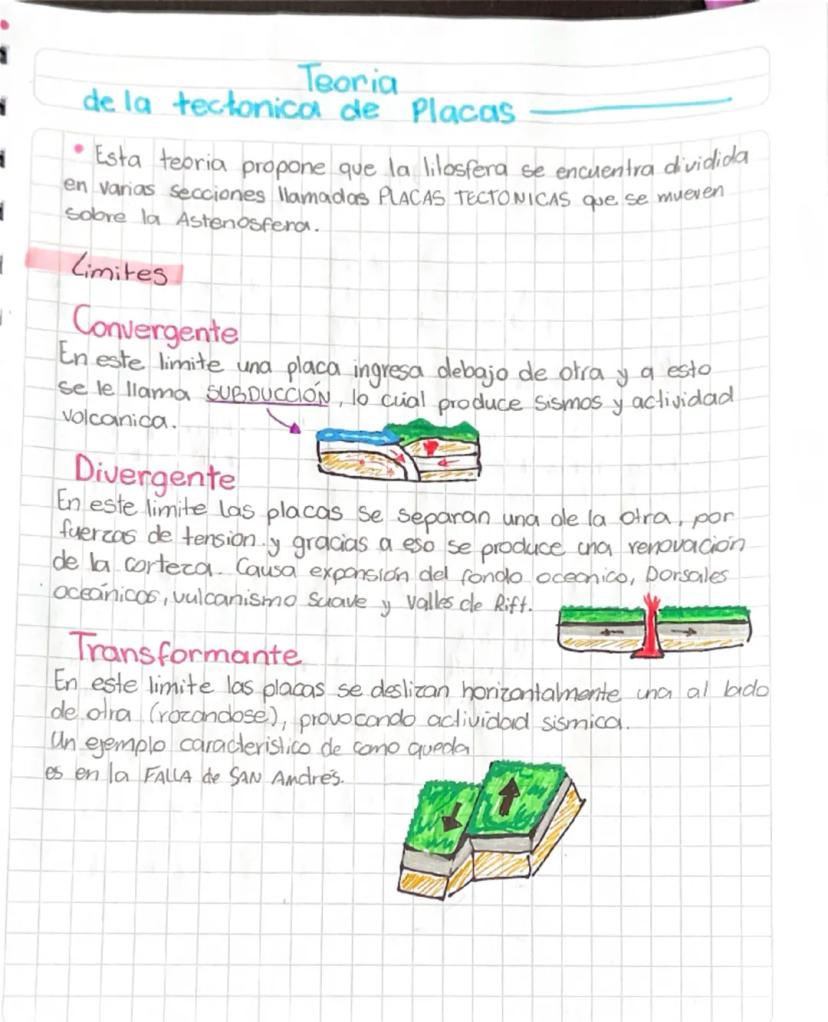 Teoria
de la tectonica de Placas
• Esta teoria propone que la lilosfera se encuentra dividida
en varias secciones llamadas PLACAS TECTONICAS que se mueven
sobre la Astenosfera.
Limites
Convergente
En este limite una placa ingresa debajo de otra y a esto
se le llama SUBDUCCIÓN, lo cual produce sismos y actividad
volcanica.
Divergente
En este limite las placas se separan una de la otra, por
fuerzas de tension y gracias a eso se produce una renovación
de la corteza. Causa expansión del fondo oceanico, Dorsales
oceánicos, vulcanismo suave y Valles de Rift.
Transformante
En este limite las placas se deslizan horizontalmente una al lado
de otra (rozandose), provocando actividad sismica.
Un ejemplo caracteristico de como queda
es en la FALLA de SAN Andrés.